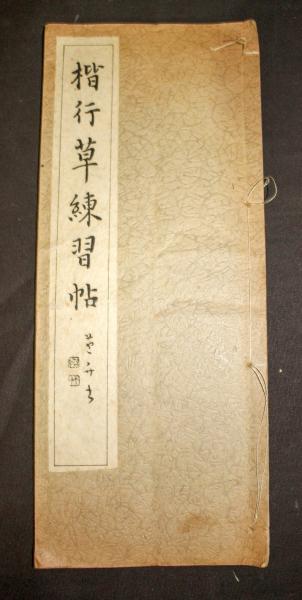 楷行草練習帖